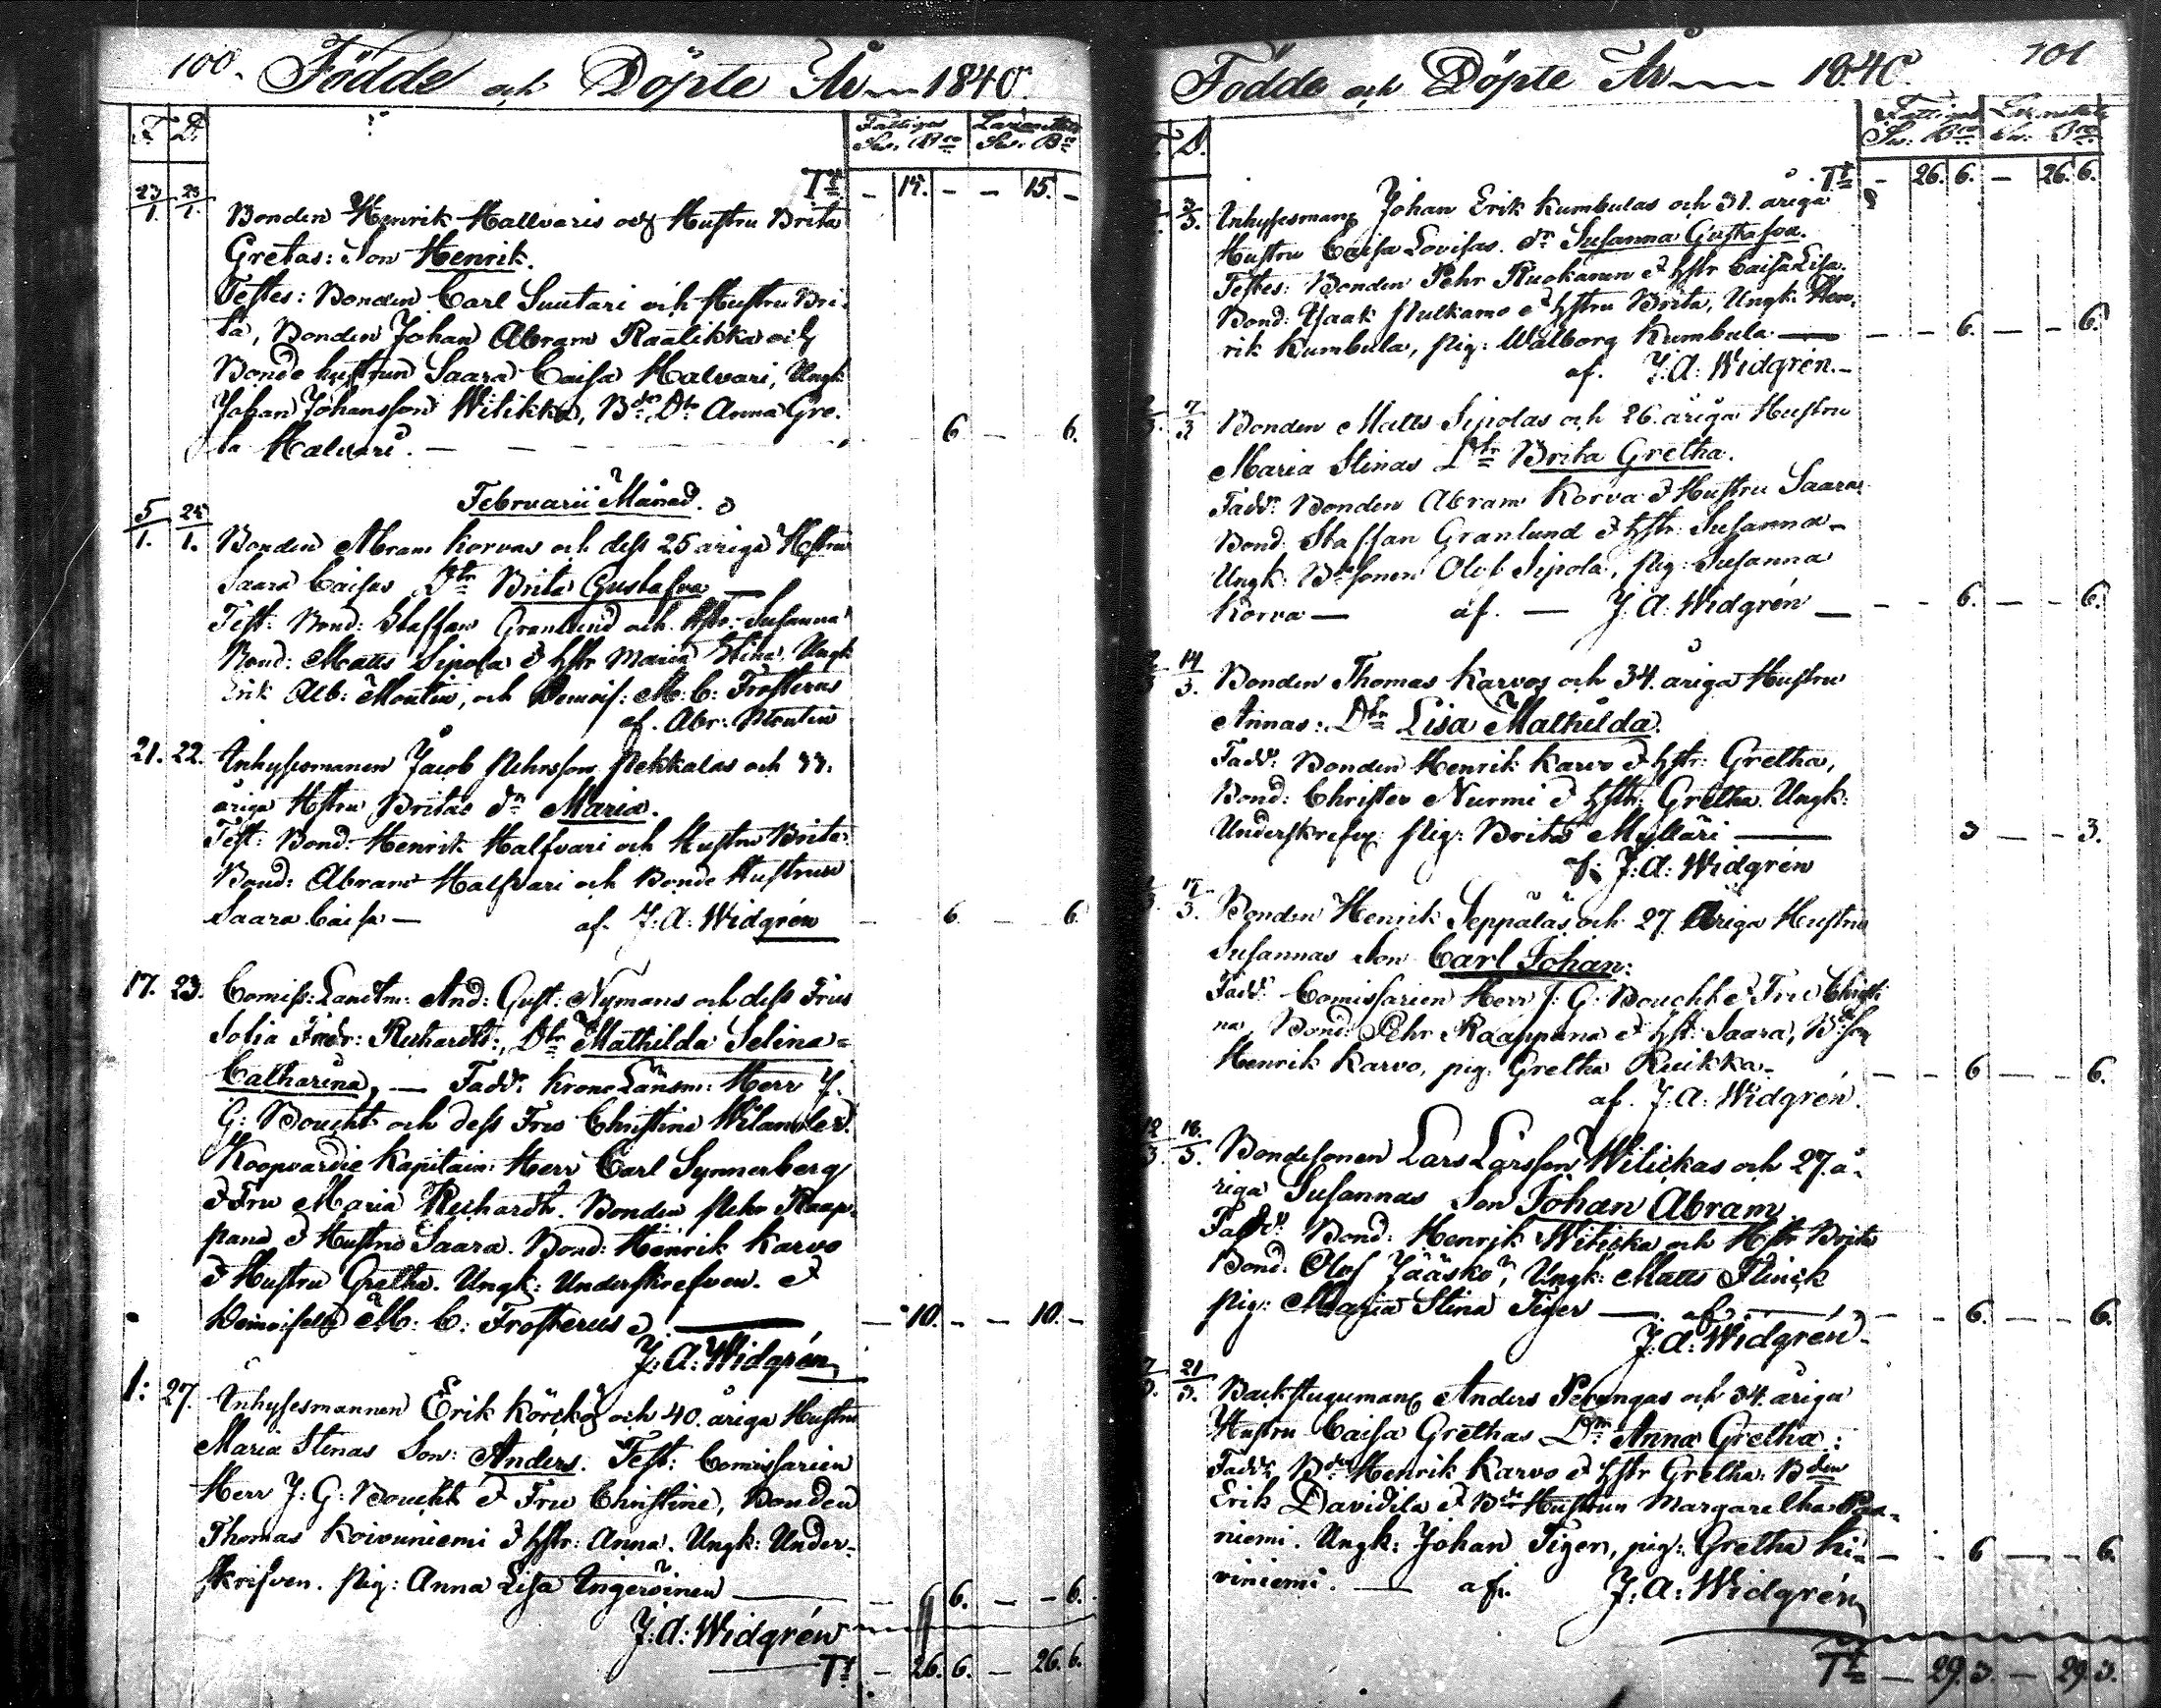 100. Födde och Döpte År 1840.
F. D. Fattigas Lazarettets
Sk. Bco Sk. Bco
Tt — 14. — — 15. —
23/1. 23/1. Bonden Henrik Hallvaris och Hustru Brita
Gretas: Son Henrik.
Testes: Bonden Carl Suutari och Hustru Bri-
ta, Bonden Johan Abram Raalikka och
Bonde hustrun Saara Caisa Halvari, Ungk.
Johan Johansson Witikka, Bde Dtr Anna Gre-
ta Halvari. — 6 — 6.
Februarii Månad.
5/1. 25/1. Bonden Abram Korvas och dess 25 åriga Hustru
Saara Caisas Dtr Brita Gustafva —
Test: Bond: Staffan Granlund och Hstr. Susanna
Bond: Matts Sipola & hstr Maria Stina, Ungk
Erik Alb: Montin, och Demois: M: C: Frosterus
af. Abr: Montin
21. 22. Inhysesmannen Jacob Pehrsson Pekkalas och 33.
åriga Hstru Britas dr Maria.
Test: Bond: Henrik Halfvari och Hustru Brita
Bond: Abram Halfvari och Bonde Hustrun
Saara Caisa — af. J: A: Widgrén — 6. — 6.
17. 23. Comiss: Landtm: And: Gust: Nymans och dess Frus
Sofia Fredr: Richardts:, Dtr Mathilda Selina=
Catharina, — Fadd: Krono Länsm: Herr J.
G: Boucht och dess Fru Christine Wilander.
Koopvardie Kapitain: Herr Carl Synnerberg
& Fru Maria Richardt. Bonden Pehr Raap-
pana & Hustru Saara. Bond: Henrik Karvo
& Hustru Gretha. Ungk: Underskrefven. &
Demoiselle M: C: Frosterus — 10. — — 10. —
J: A: Widgrén
1: 27. Inhysesmannen Erik Körckös och 40. åriga Hustru
Maria Stinas Son: Anders. Test: Comissarien
Herr J: G: Boucht & Fru Christine, Bonden
Thomas Koivuniemi & hstr: Anna. Ungk: Under-
skrifven. Pig: Anna Lisa Ingeröinen — 6. — — 6.
J: A: Widgrén
Tt — 26. 6. — 26. 6.
Födde och Döpte År 1840. 101
D. Fattigas Lazarettets
Sk. Bco Sk. Bco
Tt — 26. 6. — 26. 6.
3/3. Inhysesmans Johan Erik Kumbulas och 31. åriga
Hustru Caisa Lovisas. dr Susanna Gustafva.
Testes: Bonden Pehr Ruokanen & hstr Caisa Lisa.
Bond: Isaak Pulkamo & hstru Brita, Ungk. Hen-
rik Kumbula, pig: Walborg Kumbula — — — 6. — — 6.
af. J: A: Widgrén.
7/3 Bonden Matts Sipolas och 26. åriga Hustru
Maria Stinas Dtr Brita Gretha.
Fadd: Bonden Abram Korva & Hustru Saara
Bond: Staffan Granlund & hstr: Susanna
Ungk: Bdesonen Olof Sipola, pig: Susanna
Korva — af. — J: A: Widgrén — — — 6. — — 6.
14/3. Bonden Thomas Karvos och 34. åriga Hustru
Annas: Dtr Lisa Mathilda.
Fadd: Bonden Henrik Karvo & hstr: Gretha,
Bond: Christer Nurmi & hstr: Gretha. Ungk:
Underskrefn: Pig: Brita Myllari — 3 — — 3.
af: J: A: Widgrén
/3. Bonden Henrik Seppäläs och 27. åriga Hustru
Susannas Son Carl Johan:
Fadd: Comissarien Herr J: G: Boucht & Fru Christi-
na, Bond: Pehr Raappana & hstr: Saara, Bdeson
Henrik Karvo, pig: Gretha Ruikka. — — 6 — — 6.
af. J: A: Widgrén.
12/3. 16./3. Bondesonen Lars Larsson Witickas och 27. å-
riga Susannas Son Johan Abram.
Fadd: Bond: Henrik Witicka och Hstr Brita
Bond: Olof Jääskö, Ungk: Matts Flinck
Pig: Maria Stina Tiger — af — — 6. — — 6.
J: A: Widgrén
21/3. Backstugumans Anders Perungas och 34. åriga
Hustru Caisa Grethas Dtr Anna Gretha:
Fadd: Bden Henrik Karvo & hstr Gretha: Bden
Erik Davidila & Bde Hustrun Margaretha Paa-
niemi. Ungk: Johan Tiger, pig: Gretha Ki- — — 6 — — 6.
viniemi. — af. J: A: Widgrén
Tt — 29. 3. — 29. 3.